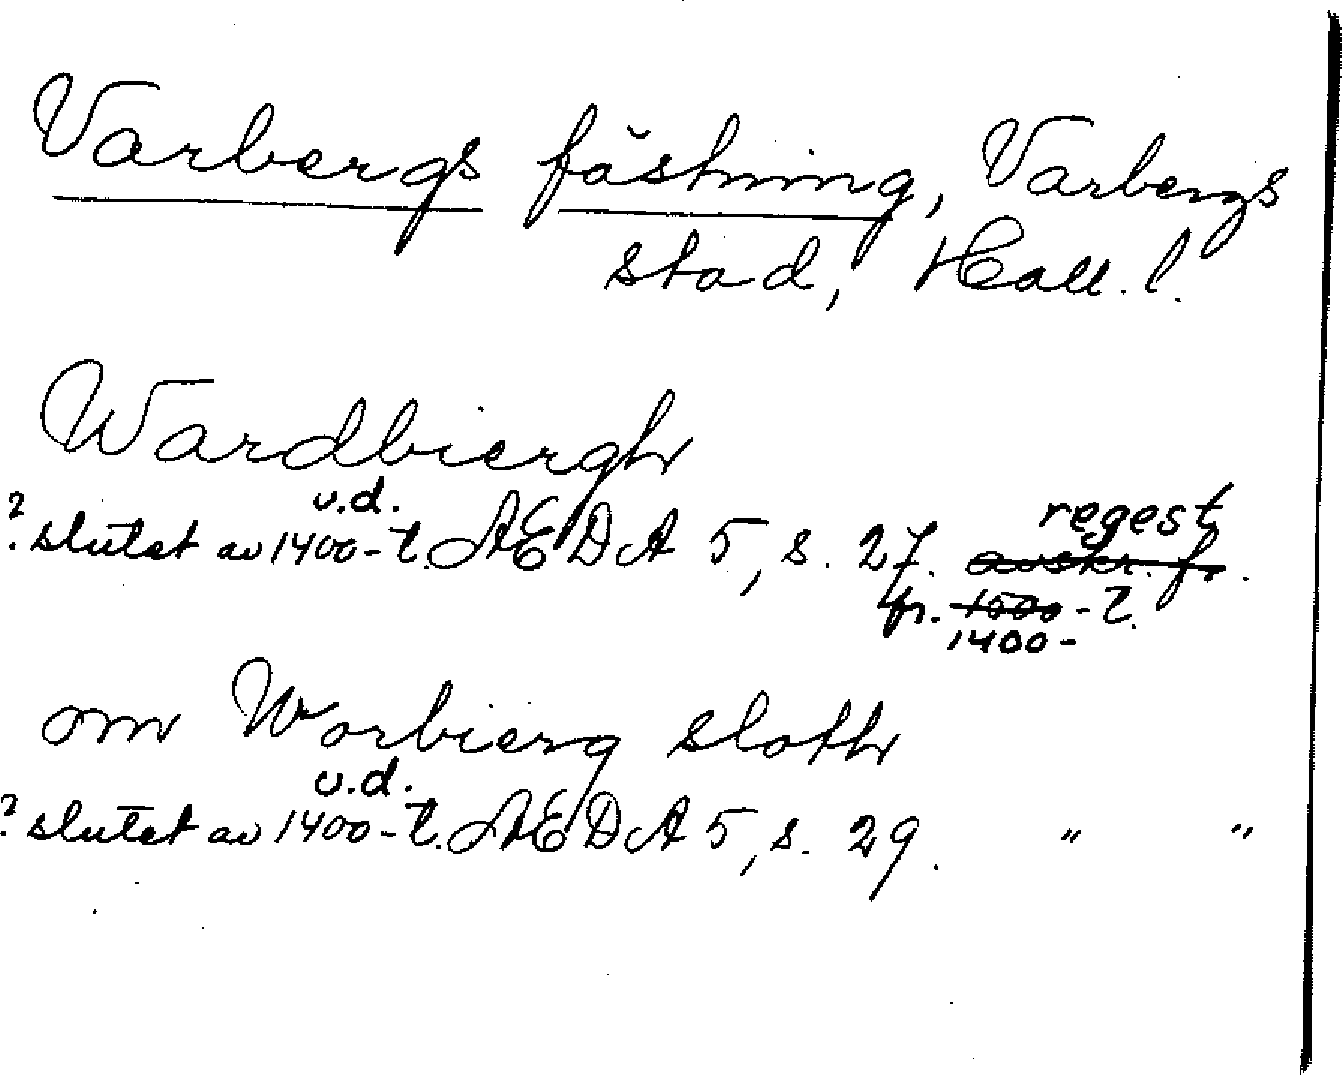 Varbergs fästning, Varbergs
stad, Hall. l.
Wardbiergh
u.d.
? slutet av 1400-t. ÆDA 5, s. 27. regest
avskr. fr.
fr. 1500-t.
1400-
om Worbierg sloth
u.d.
? slutet av 1400-t. ÆDA 5, s. 29. " "